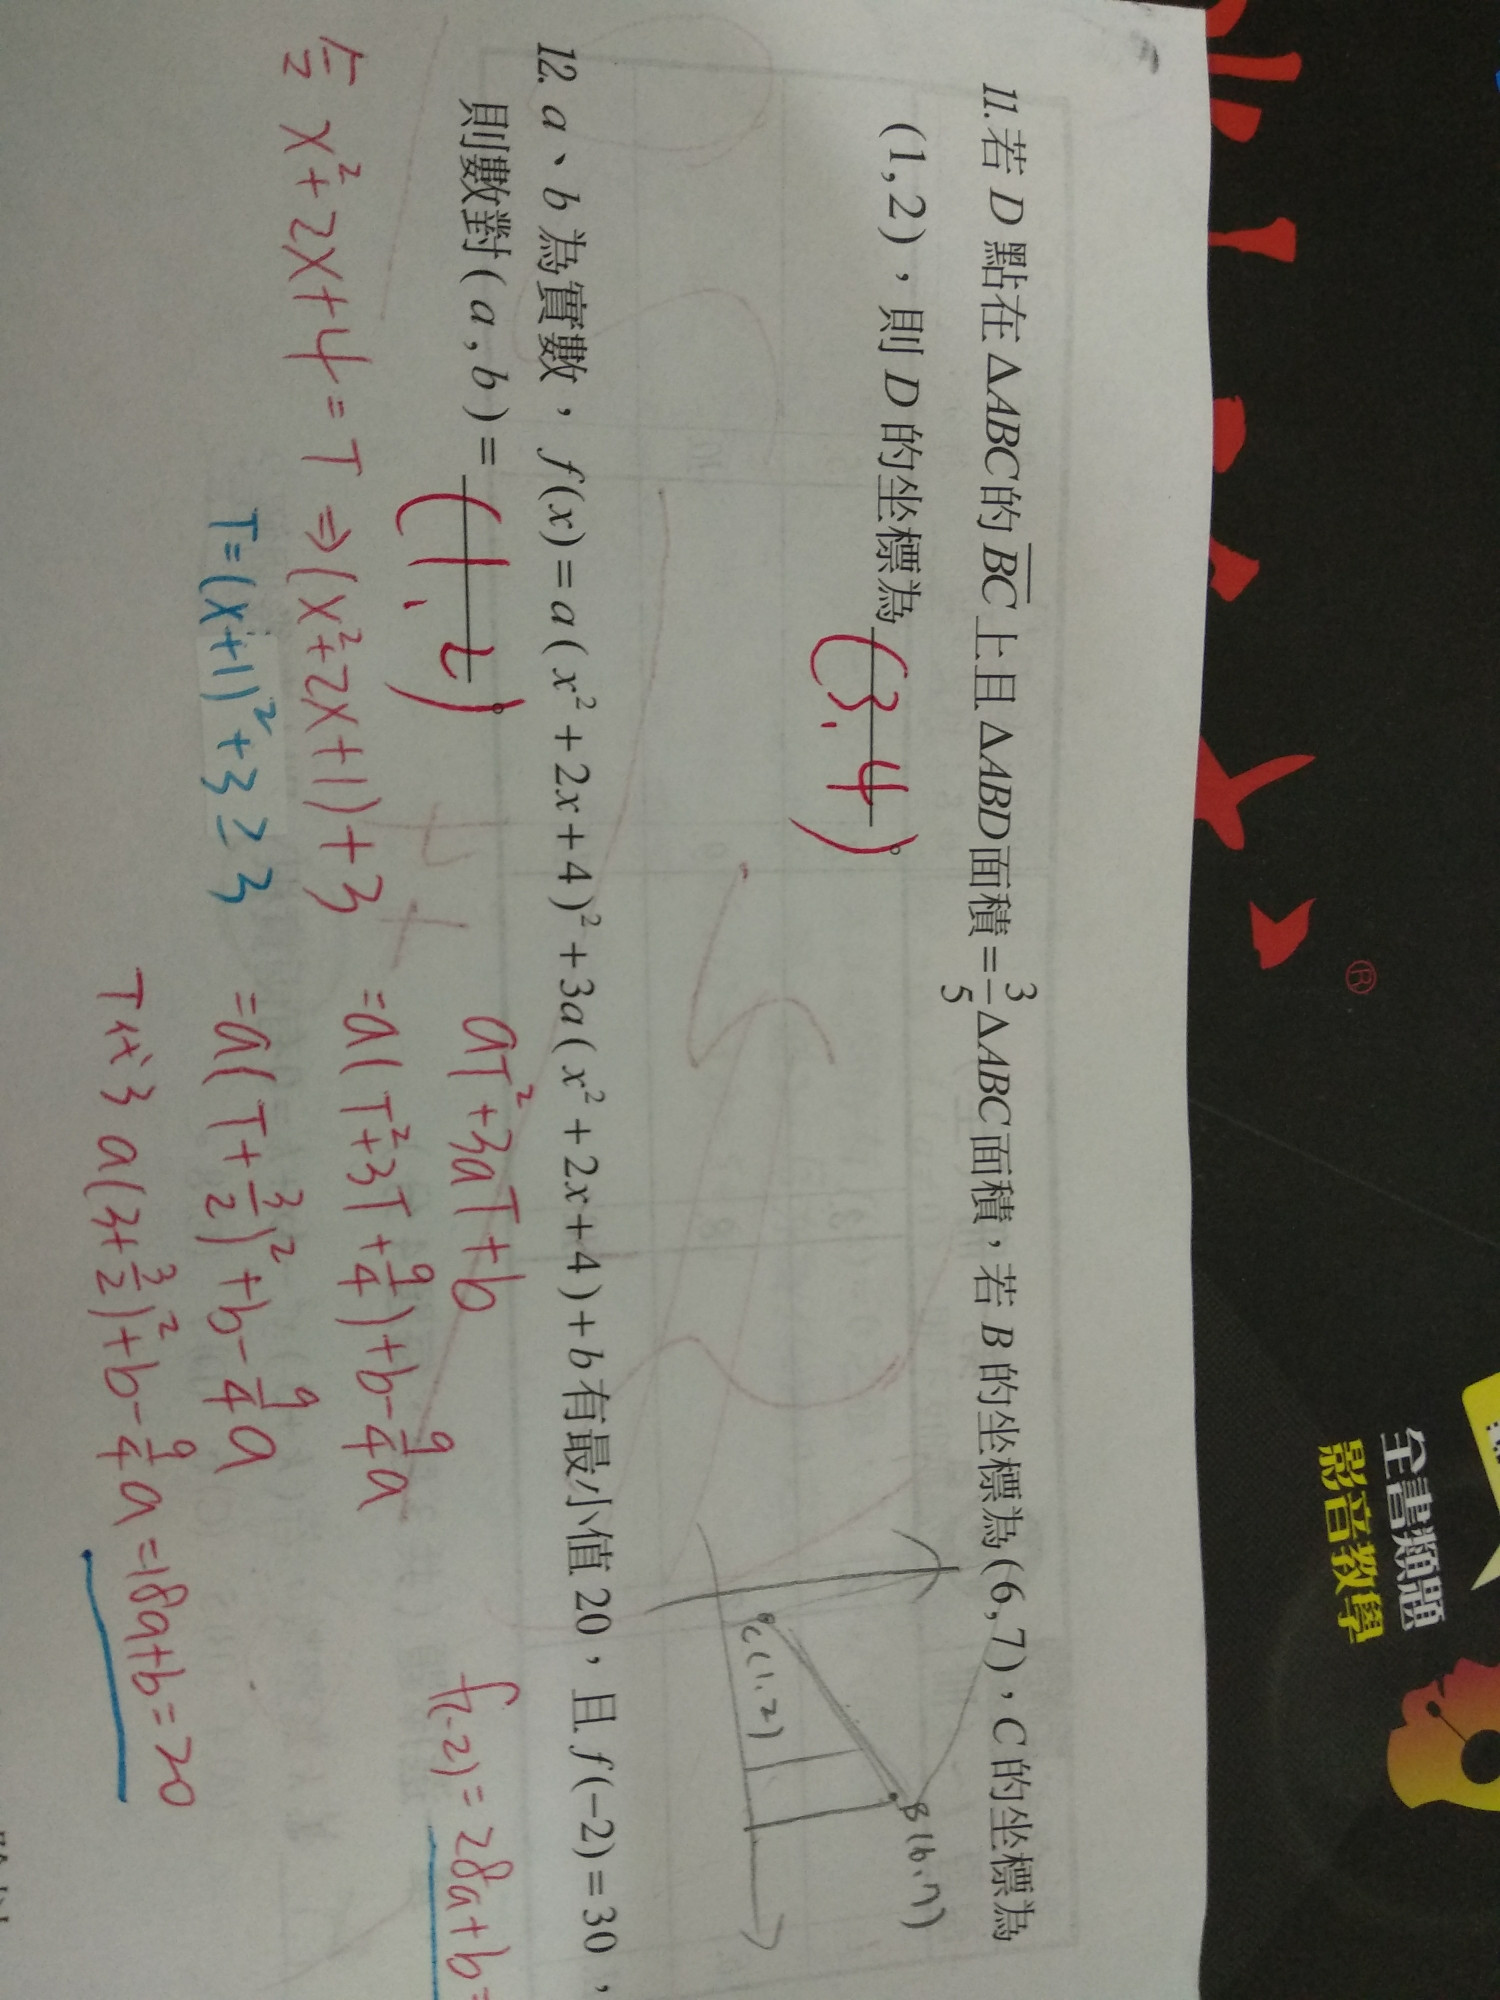 11.若 D 點在 ΔABC的 BC 上且 ΔABD面積=3/5ΔABC面積，若 B 的坐標為(6,7)，C 的坐標為
(1,2)，則 D 的坐標為(3,4)。
C(1,2)
B(6,7)
12. a、b 為實數，f(x)=a(x²+2x+4)²+3a(x²+2x+4)+b有最小值 20，且 f(−2)=30，
則數對(a,b)=(1,2)。
令 x²+2x+4=T ⇒(x²+2x+1)+3
T=(x+1)²+3≥3
aT²+3aT+b
=a(T²+3T+9/4)+b-9/4a
=a(T+3/2)²+b-9/4a
T代3 a(3+3/2)²+b-9/4a=18a+b=20
f(-2)=28a+b=
®
全書類題
影音教學